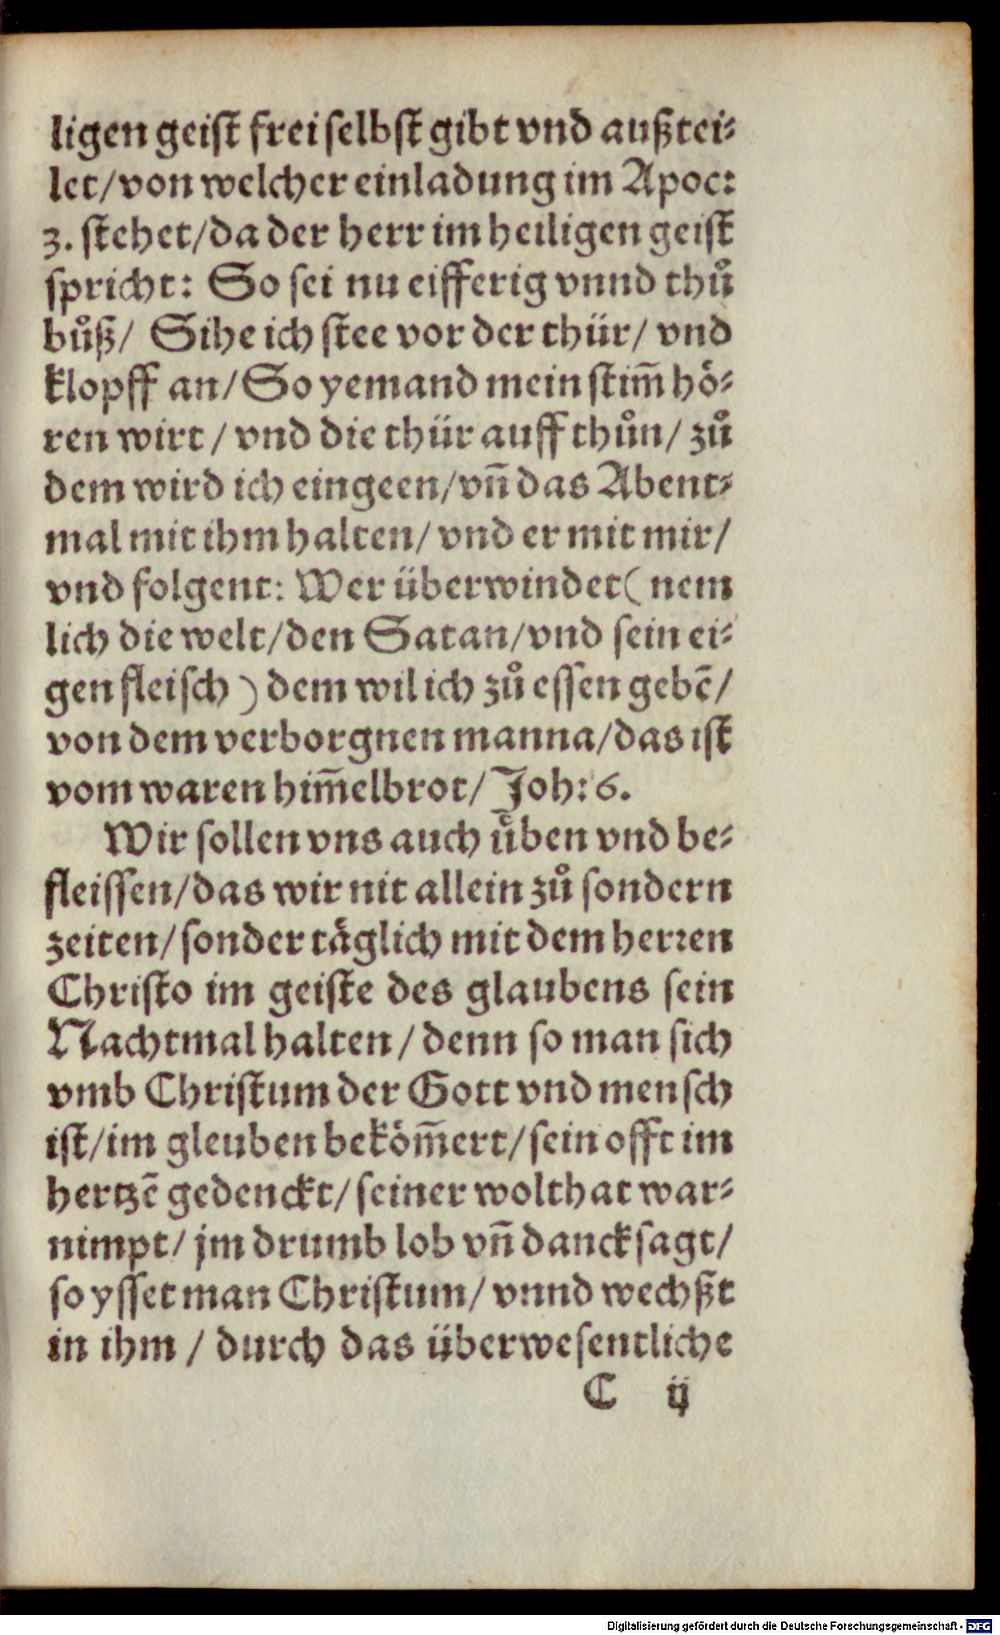 ligen geiſt frei ſelbſt gibt vnd außtei⸗
let/von welcher einladung im Apoc:
3. ſtehet/da der herr im heiligen geiſt
ſpricht: So ſei nu eifferig vnnd thuͦ
buͦß/ Sihe ich ſtee vor der thür/ vnd
klopff an/So yemand mein ſtim̃ hoͤ⸗
ren wirt/ vnd die thür auff thuͦn/ zuͦ
dem wird ich eingeen/vñ das Abent⸗
mal mit ihm halten/ vnd er mit mir/
vnd folgent: Wer überwindet( nem
lich die welt/den Satan/vnd ſein ei⸗
gen fleiſch ) dem wil ich zuͦ eſſen gebẽ/
von dem verborgnen manna/das iſt
vom waren him̃elbrot/ Joh: 6.
Wir ſollen vns auch uͤben vnd be⸗
fleiſſen/das wir nit allein zuͦ ſondern
zeiten/ſonder taͤglich mit dem herꝛen
Chriſto im geiſte des glaubens ſein
Nachtmal halten/ denn ſo man ſich
vmb Chriſtum der Gott vnd menſch
iſt/im gleuben bekoͤm̃ert/ſein offt im
hertzẽ gedenckt/ſeiner wolthat war⸗
nimpt/ jm drumb lob vñ danck ſagt/
ſo yſſet man Chriſtum/ vnnd wechßt
in ihm / durch das überweſentliche
C ij
Digitalisierung gefördert durch die Deutsche Forschungsgemeinschaft - DFG